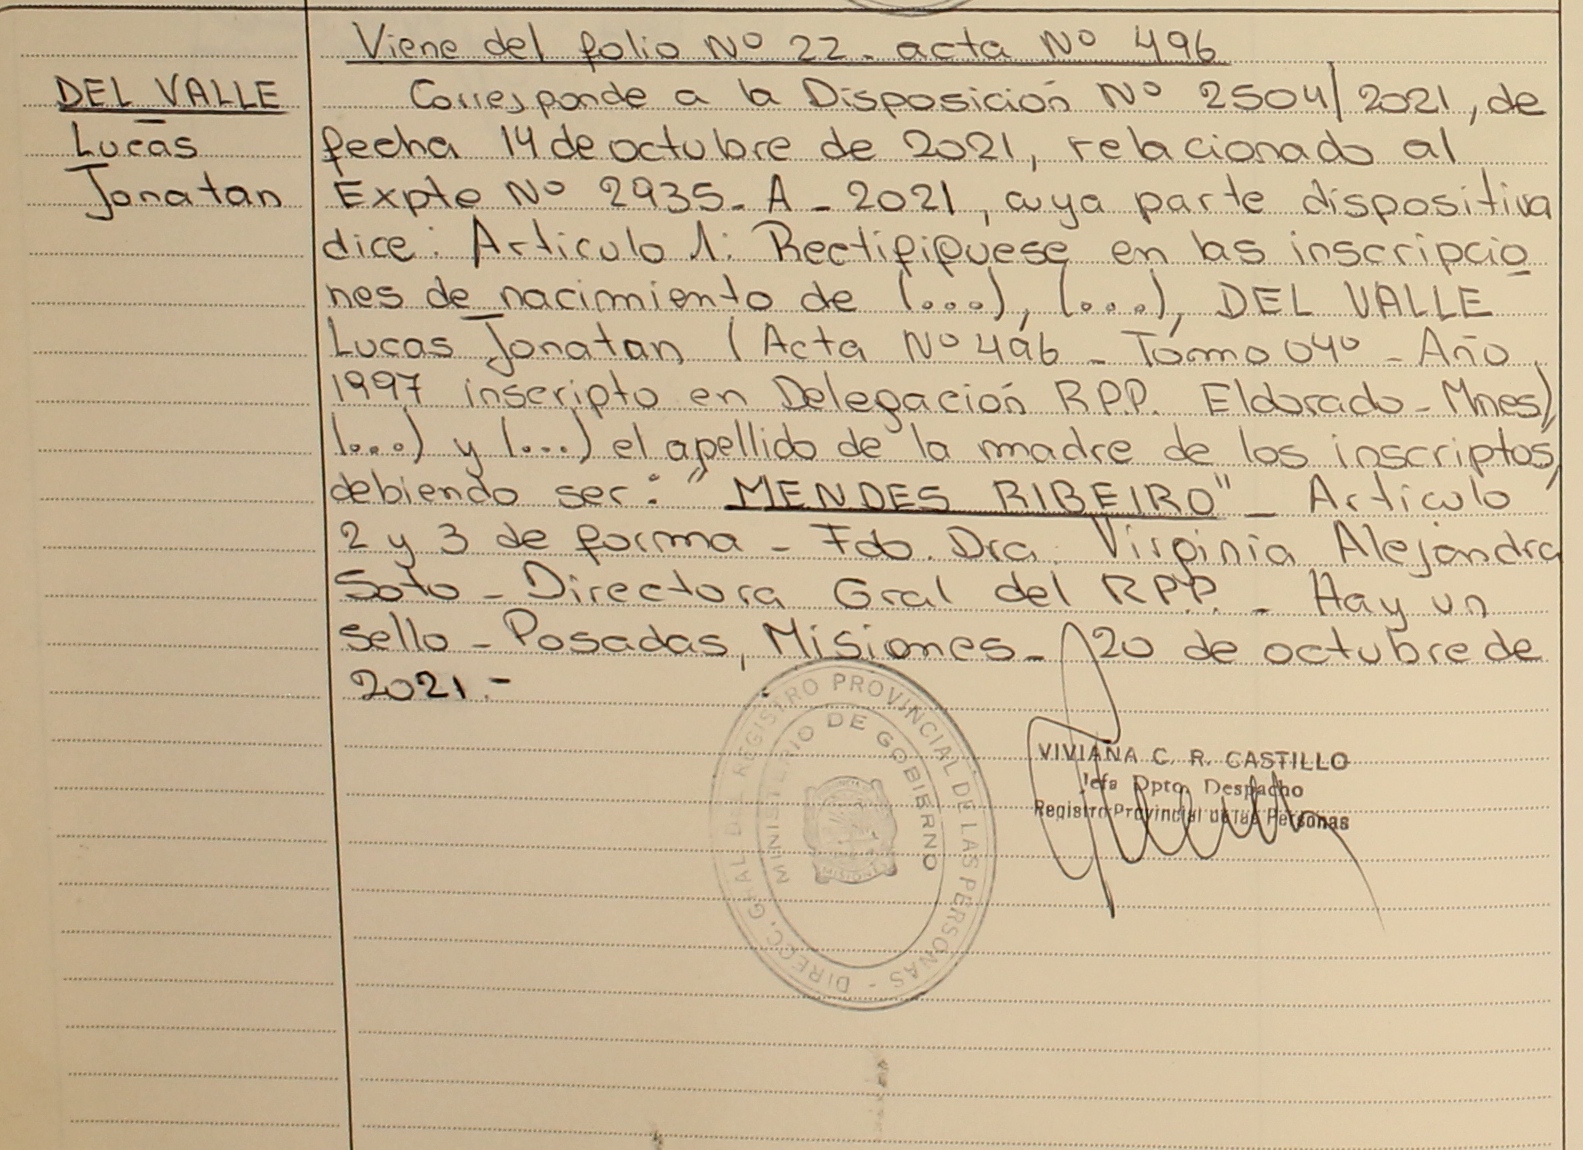 Viene del folio Nº 22. acta Nº 496
DEL VALLE
Lucas
Jonatan
Corresponde a la Disposición Nº 2504/2021, de
fecha 14 de octubre de 2021, relacionado al
Expte Nº 2935-A-2021, cuya parte dispositiva
dice: Artículo 1: Rectifíquese en las inscripcio
nes de nacimiento de (...), (...), DEL VALLE
Lucas Jonatan (Acta Nº 496 - Tomo 04º - Año
1997 inscripto en Delegación R.P.P. Eldorado-Mnes)
(...) y (...) el apellido de la madre de los inscriptos,
debiendo ser: "MENDES RIBEIRO" - Artículo
2 y 3 de forma - Fdo. Dra. Virginia Alejandra
Soto - Directora Gral del RPP. - Hay un
sello - Posadas, Misiones - 20 de octubre de
2021.-
DIRECC. GRAL. DEL REGISTRO PROVINCIAL DE LAS PERSONAS -
MINISTERIO DE GOBIERNO
MISIONES
VIVIANA C. R. CASTILLO
Jefa Dpto. Despacho
Registro Provincial de las Personas